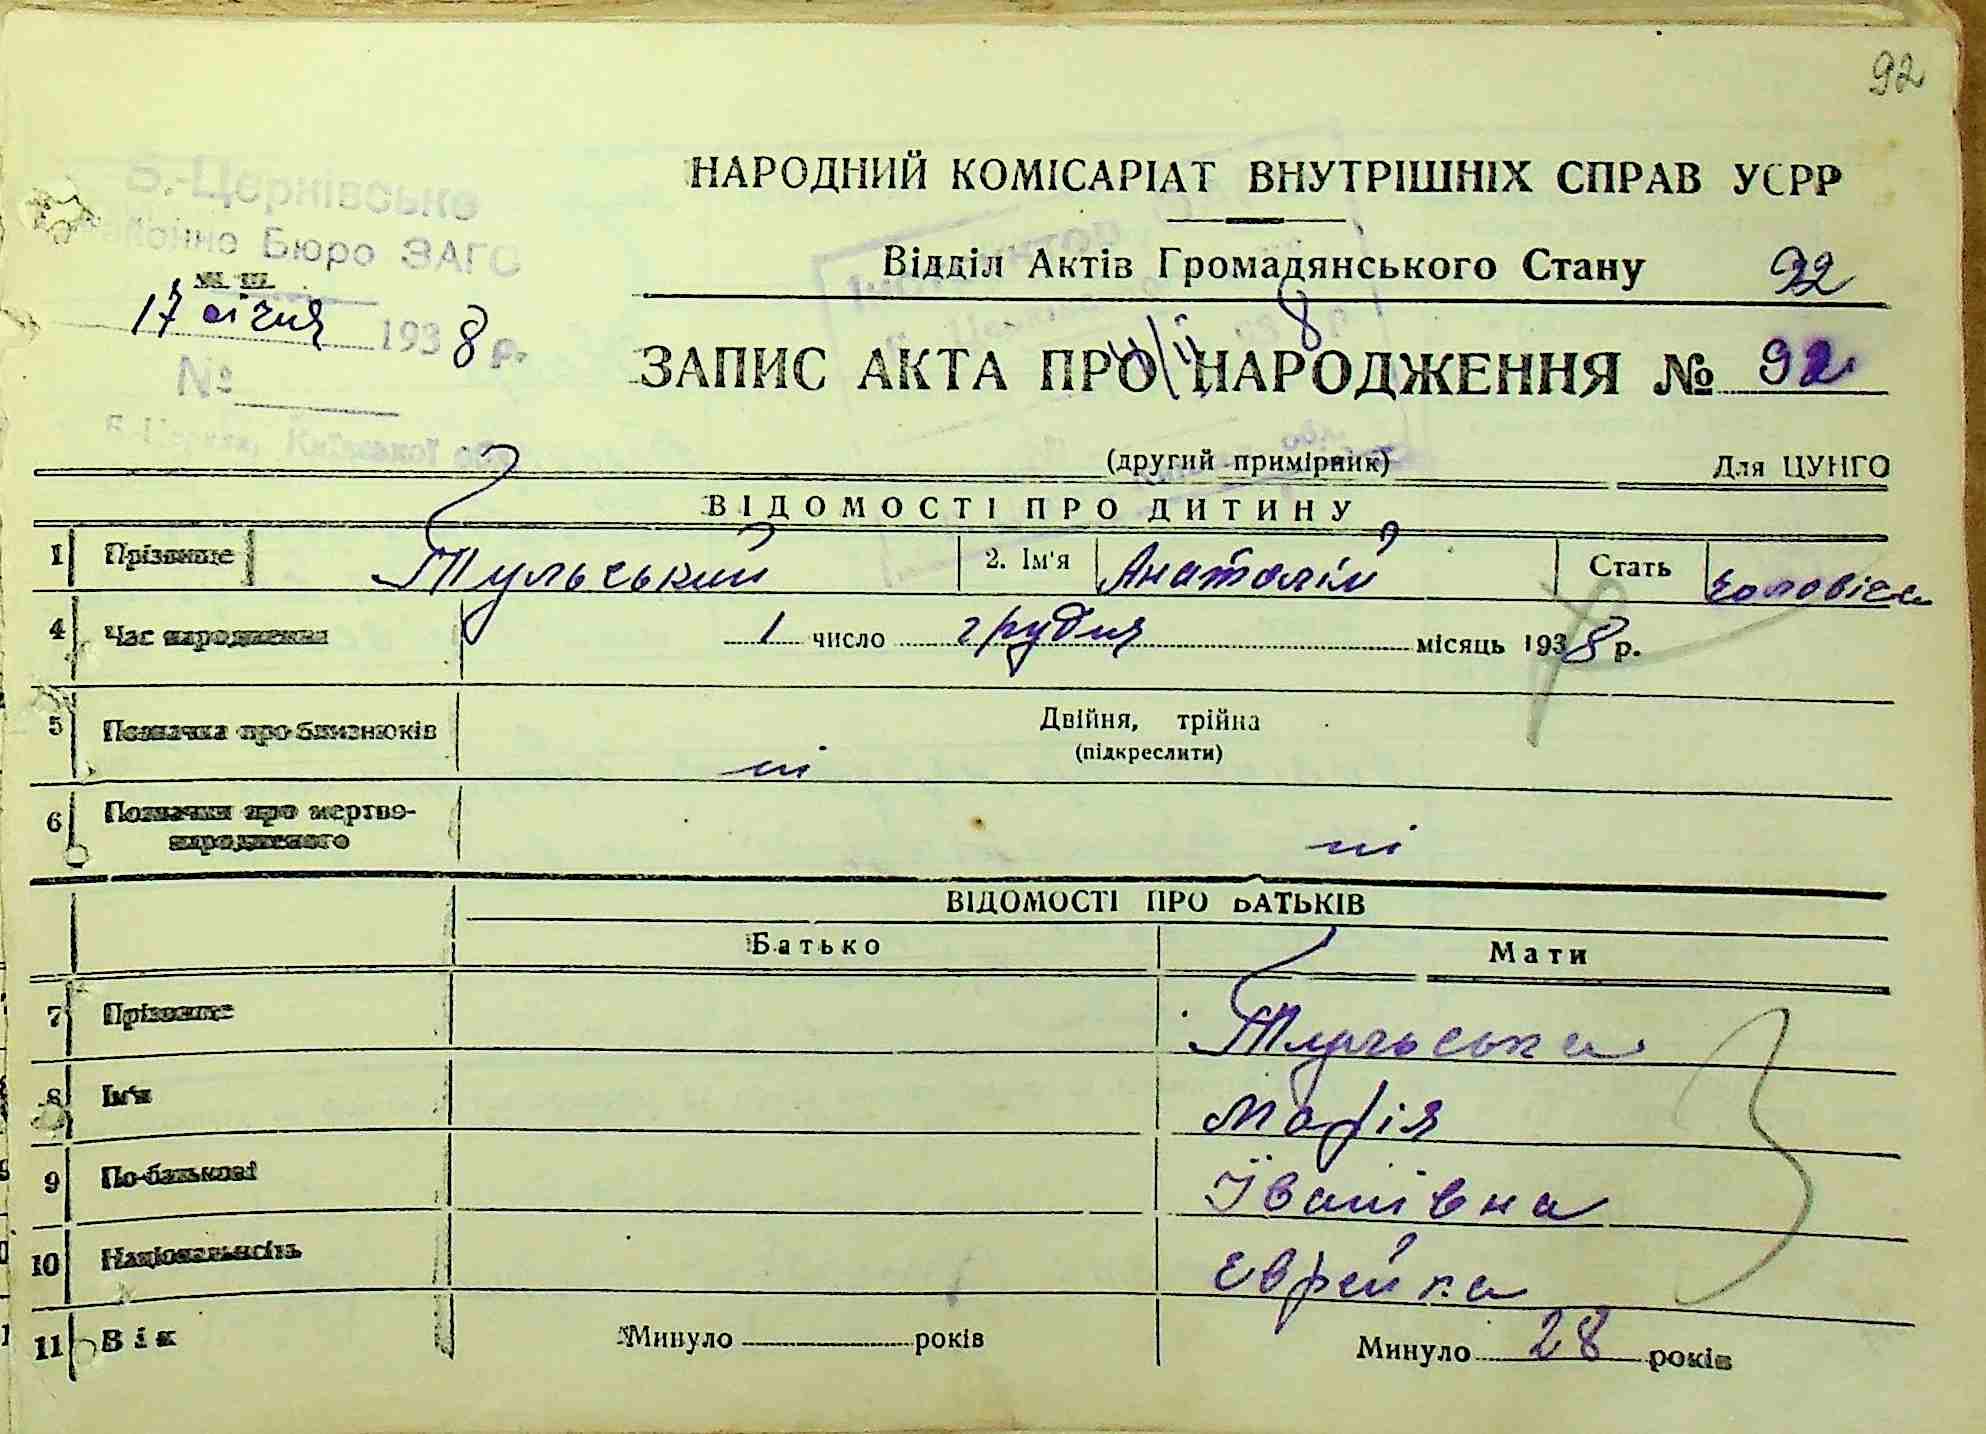 92
НАРОДНИЙ КОМІСАРІАТ ВНУТРІШНІХ СПРАВ УСРР
Б.-Церківське
районне Бюро ЗАГС
Відділ Актів Громадянського Стану 92
17 січня 1938 р.
ЗАПИС АКТА ПРО НАРОДЖЕННЯ № 92
№
Б-Церква, Київської обл.
(другий примірник) Для ЦУНГО
ВІДОМОСТІ ПРО ДИТИНУ
1 Прізвище Тульський 2. Ім'я Анатолій Стать
4 Час народження 1 число грудня місяць 1938 р.
5 Позначка про близнюків Двійня, трійна
(підкреслити)
ні
6 Позначки про мертво-
народженого ні
ВІДОМОСТІ ПРО БАТЬКІВ
Батько Мати
7 Прізвище Тульська
8 Ім'я Марія
9 По-батькові Їванівна
10 Національність єврейка
11 Вік Минуло років Минуло 28 років